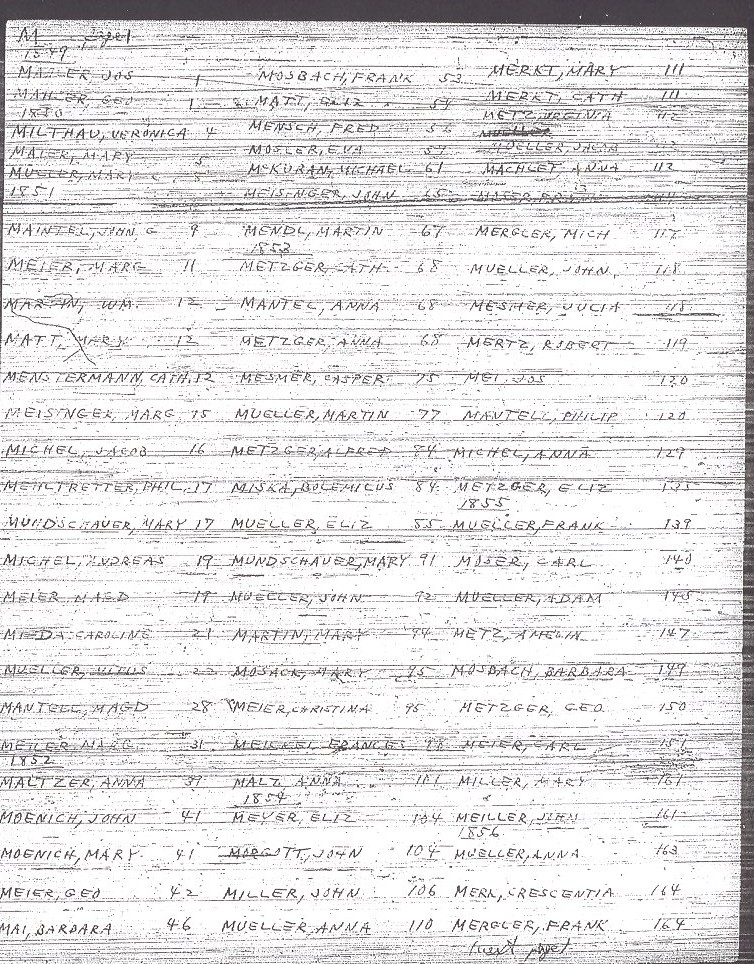 M
1549
MAHLER, JOS 1
MAHLER, GEO 1
1850
MILTHAU, VERONICA 4
MAIER, MARY 5
MUELLER, MARY 5
1851
MAINTEL, JOHN G 9
MEIER, MARG 11
MARTIN, WM. 12
MATT, MARY 12
MENSTERMANN, CATH. 12
MEISINGER, MARG 15
MICHEL, JACOB 16
MEHLTRETTER, PHIL. 17
MUNDSCHAUER, MARY 17
MICHEL, ANDREAS 19
MEIER MAGD 19
CAROLINE 21
MUELLER, 22
MANTELL, MAGD 28
MEILER, MARG 31
1852
MALTZER, ANNA 39
MOENICH, JOHN 41
MOENICH, MARY 41
MEIER, GEO 42
MAI, BARBARA 46
MOSBACH, FRANK 53
MATT, ELIZ 54
MENSCH, FRED 56
MOSLER, EVA 59
McKURAN, MICHAEL 61
MEISINGER, JOHN 65
MENDL, MARTIN 67
1853
METZGER, CATH 68
MANTEL, ANNA 68
METZGER, ANNA 68
MESMER, CASPER 75
MUELLER, MARTIN 77
METZGER, ALFRED
MISKA, BOLEMILUS 84
MUELLER, ELIZ 85
MUNDSCHAUER, MARY 91
MUELLER, JOHN 92
MARTIN, MARY 94
MOSACK, MARY 95
MEIER, CHRISTINA 95
FRANCES
MALZ ANNA 101
1854
MEYER, ELIZ 104
MORGOTT, JOHN 104
MILLER, JOHN 106
MUELLER ANNA 110
MERKT, MARY 111
MERKT, CATH 111
METZ, VIRGINIA 112
MUELLER
MUELLER JACOB 112
MACHLET ANNA 112
MERGLER, MICH 117
MUELLER, JOHN 118
MESMER, JULIA 118
MERTZ, ROBERT 119
MEI, JOS 120
MANTELL, PHILIP 120
MICHEL, ANNA 129
METZGER, ELIZ
1855
MUELLER, FRANK 139
MOSER, CARL 140
MUELLER, ADAM 145
METZ, AMELIA 147
MOSBACH, BARBARA 149
METZGER, GEO 150
MEIER, CARL
MILLER, MARY 161
MEILLER, JOHN 161
1856
MUELLER, ANNA 163
MERK, CRESCENTIA 164
MERGLER, FRANK 164
(next page)